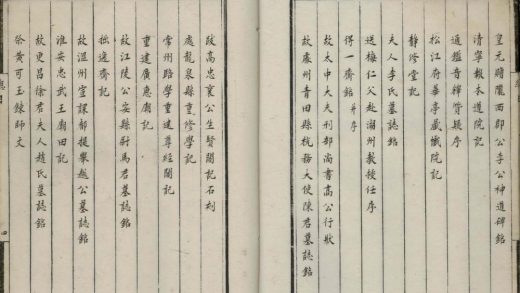 皇元贈隴西郡公李公神道碑銘
清寧報本道院記
通鑑音釋質疑序
松江府華亭藏懺院記
靜修堂記
夫人李氏墓誌銘
送梅仁父赴潮州教授任序
得一齋銘 并序
故太中大夫刑部尚書高公行狀
故處州青田縣稅務大使陳君墓誌銘
跋高忠襄公生賢閣記石刻
處龍泉縣重修學記
常州路學重建尊經閣記
重建廣應廟記
故江陵公安縣尉馬君墓誌銘
拙逸齋記
故溫州宣課都提舉趙公墓誌銘
淮安忠武王廟田記
故更昌徐君夫人趙氏墓誌銘
徐黃可玉鍊師文